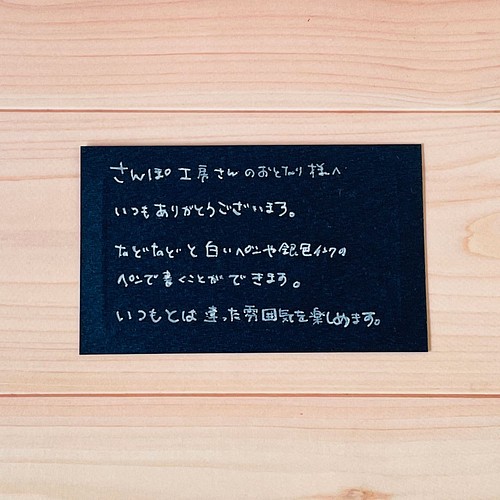 さんぽ工房さんのおとなり様へ
いつもありがとうございます。
などなどと白いペンや銀色インクの
ペンで書くことができます。
いつもとは違った雰囲気を楽しめます。